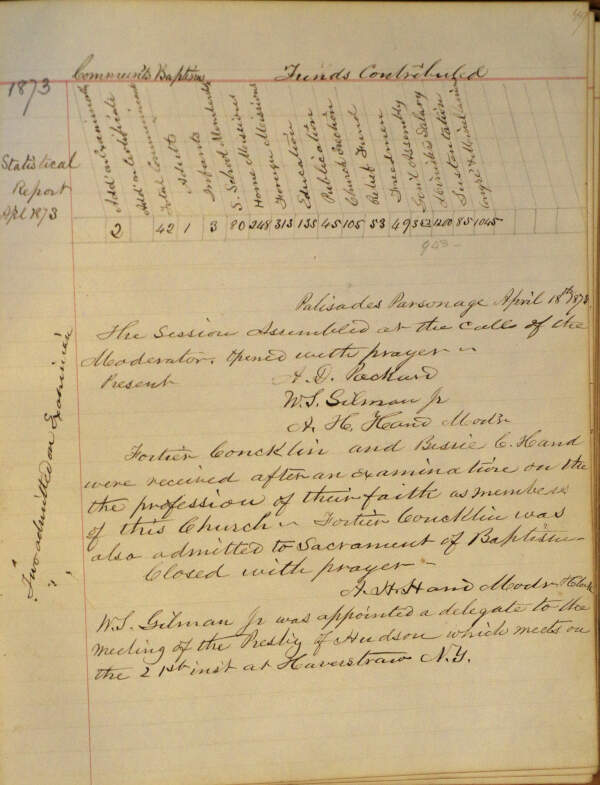 1873
Communts Baptism Funds Contributed
Statistical
Report
Apl 1873
Add on Examination
Add on Certificate
Total Communts
Adults
Infants
S. School Members
Home Missions
Foreign Missions
Education
Publication
Church Erection
Relief Fund
Freedmen
Genl Assembly
Ministers Salary
Sustentation
Congl & Miscellaneous
2 42 1 3 80 248 313 135 45 105 53 49 1200 85 1045
Palisades Parsonage April 18th 1873
The Session Assembled at the calls of the
Moderator. Opened with prayer
Present A. D. Packard
W. S. Gilman Jr
A. H. Hand Modr
Two admitted on Examinan
Fortier Concklin and Bessie C. Hand
were received after an examination on the
the profession of their faith as members
of this Church Fortier Concklin was
also admitted to Sacrament of Baptism
Closed with prayer
A. H. Hand Modr & Clerk
W. S. Gilman Jr was appointed a delegate to the
meeting of the Presby of Hudson which meets on
the 21st inst at Haverstraw N.Y.